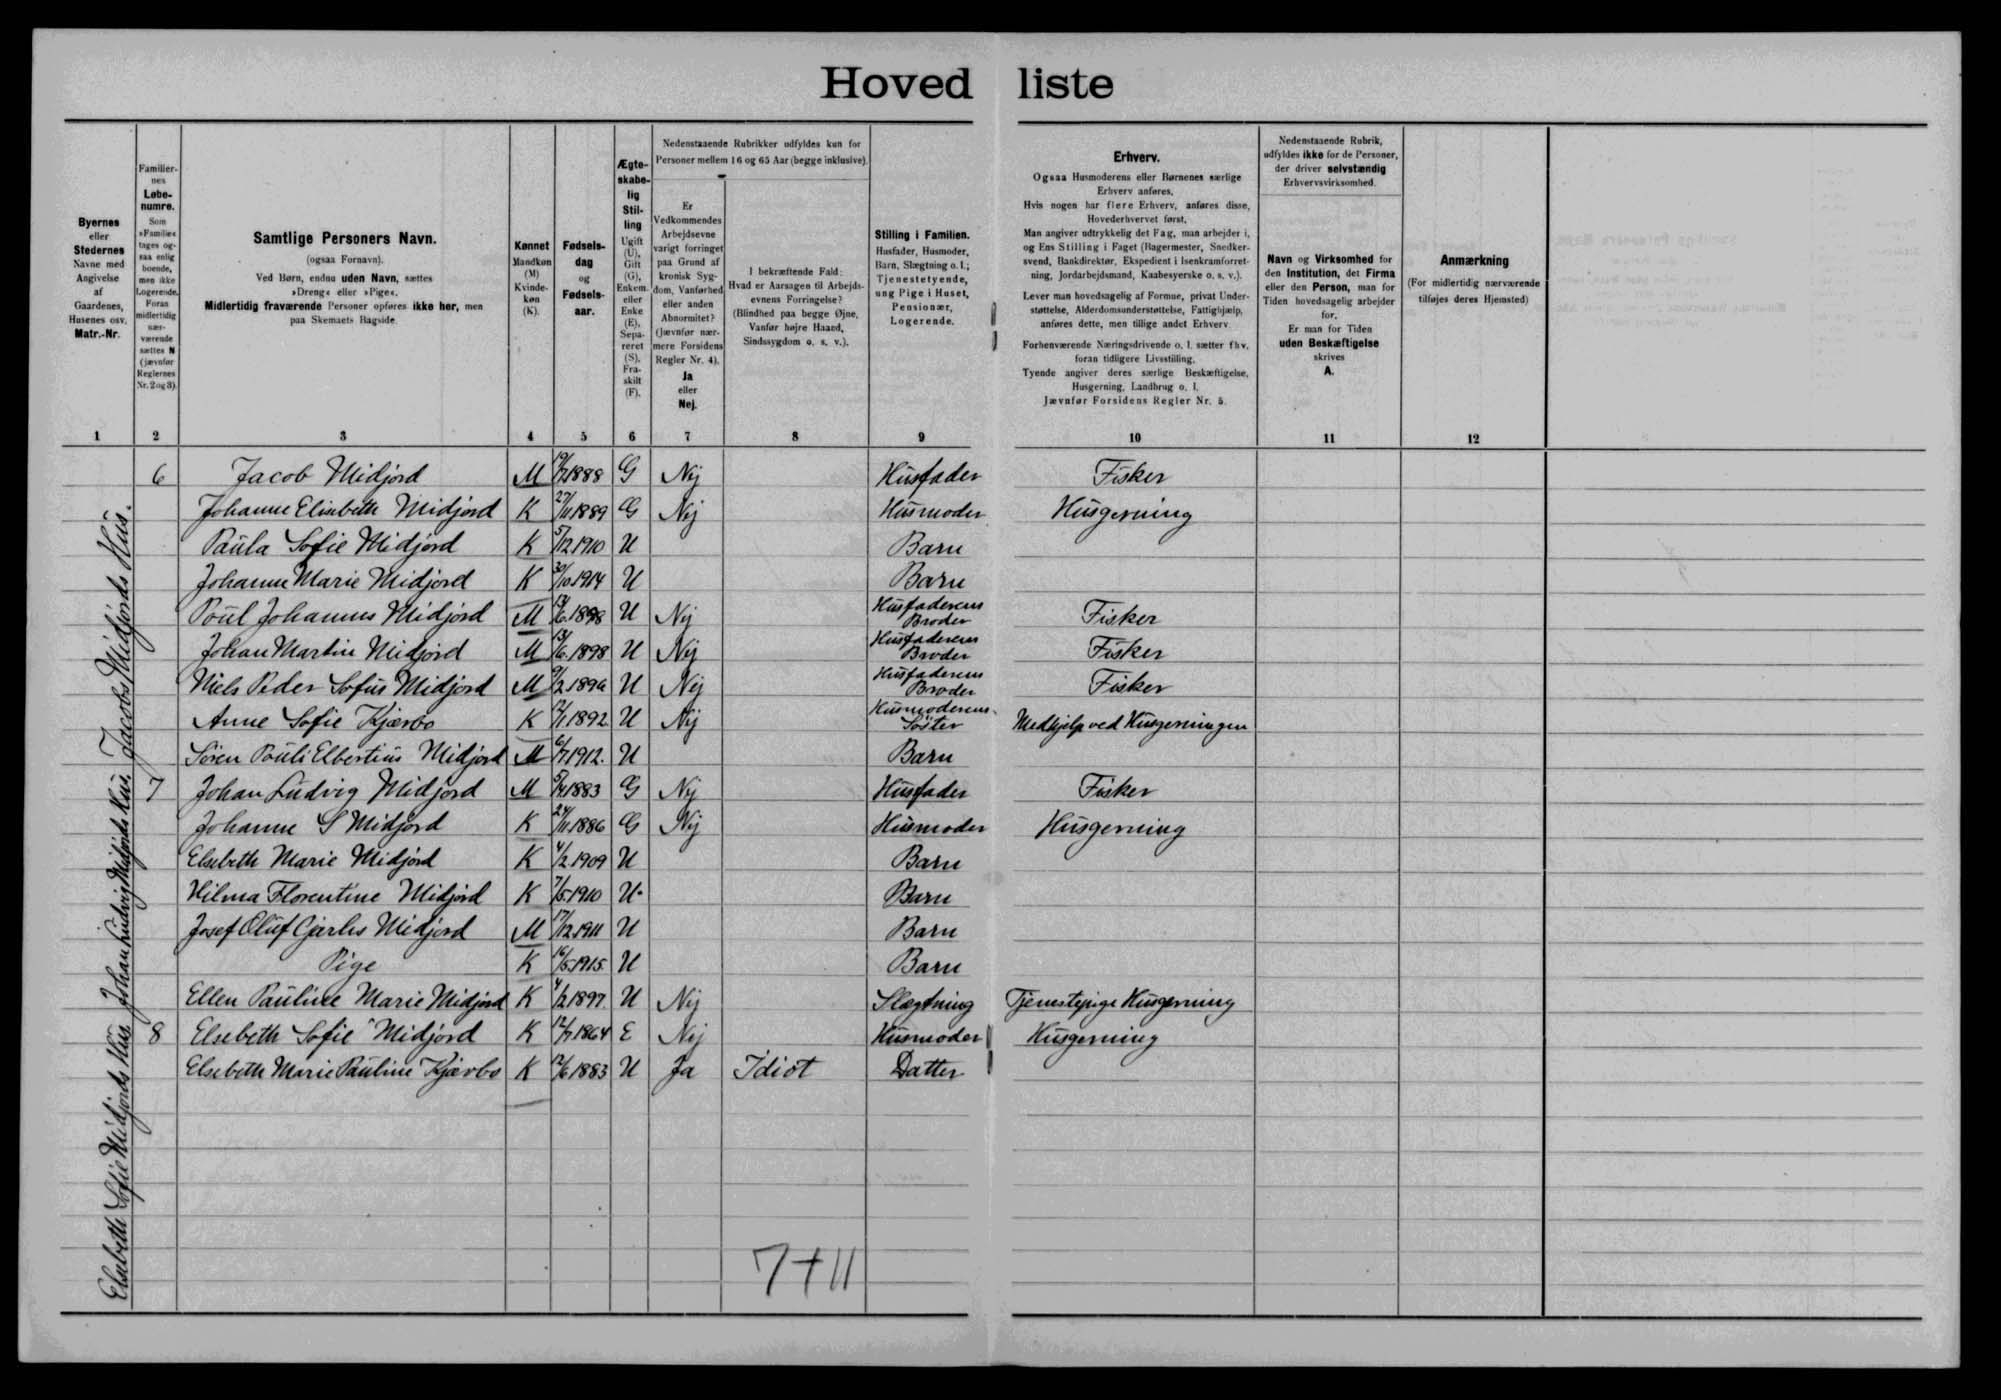 Hoved liste
Byernes
eller
Stedernes
Navne med
Angivelse
af
Gaardenes,
Husenes osv.
Matr.-Nr.
Familier-
nes
Løbe-
numre.
Som
»Familie«
tages og-
saa enlig
boende,
men ikke
Logerende.
Foran
midlertidig
nær-
værende
sættes N
(jævnfør
Reglernes
Nr. 2 og 3).
Samtlige Personers Navn.
(ogsaa Fornavn).
Ved Børn, endnu uden Navn, sættes
»Dreng« eller »Pige«.
Midlertidig fraværende Personer opføres ikke her, men
paa Skemaets Bagside.
Kønnet
Mandkøn
(M)
Kvinde-
køn
(K).
Fødsels-
dag
og
Fødsels-
aar.
Ægte-
skabe-
lig
Stil-
ling
Ugift
(U),
Gift
(G),
Enkem.
eller
Enke
(E),
Sepa-
reret
(S),
Fra-
skilt
(F).
Nedenstaaende Rubrikker udfyldes kun for
Personer mellem 16 og 65 Aar (begge inklusive).
Er
Vedkommendes
Arbejdsevne
varigt forringet
paa Grund af
kronisk Syg-
dom, Vanførhed
eller anden
Abnormitet?
(Jævnfør nær-
mere Forsidens
Regler Nr. 4).
Ja
eller
Nej.
I bekræftende Fald:
Hvad er Aarsagen til Arbejds-
evnens Forringelse?
(Blindhed paa begge Øjne,
Vanfør højre Haand,
Sindssygdom o. s. v.).
Stilling i Familien.
Husfader, Husmoder,
Barn, Slægtning o. l.;
Tjenestetyende,
ung Pige i Huset,
Pensionær,
Logerende.
Erhverv.
Ogsaa Husmoderens eller Børnenes særlige
Erhverv anføres.
Hvis nogen har flere Erhverv, anføres disse,
Hovederhvervet først.
Man angiver udtrykkelig det Fag, man arbejder i,
og Ens Stilling i Faget (Bagermester, Snedker-
svend, Bankdirektør, Ekspedient i Isenkramforret-
ning, Jordarbejdsmand, Kaabesyerske o. s. v.).
Lever man hovedsagelig af Formue, privat Under-
støttelse, Alderdomsunderstøttelse, Fattighjælp,
anføres dette, men tillige andet Erhverv.
Forhenværende Næringsdrivende o. l. sætter fhv.
foran tidligere Livsstilling.
Tyende angiver deres særlige Beskæftigelse,
Husgerning, Landbrug o. l.
Jævnfør Forsidens Regler Nr. 5.
Nedenstaaende Rubrik,
udfyldes ikke for de Personer,
der driver selvstændig
Erhvervsvirksomhed.
Navn og Virksomhed for
den Institution, det Firma
eller den Person, man for
Tiden hovedsagelig arbejder
for.
Er man for Tiden
uden Beskæftigelse
skrives
A.
Anmærkning
(For midlertidig nærværende
tilføjes deres Hjemsted)
1 2 3 4 5 6 7 8 9 10 11 12
6 Jacob Midjord M 1888 G Nej Husfader Fisker
Johanne Elisebeth Midjord K 27/11 1889 G Nej Husmoder Husgerning
Paula Sofie Midjord K 5/12 1910 U Barn
Johanne Marie Midjord K 30/10 1914 U Barn
Poul Johannes Midjord M 13/6. 1898 U Nej Husfaderens Broder Fisker
Johan Martin Midjord M 13/6. 1898 U Nej Husfaderens Broder Fisker
Niels Peder Sofus Midjord M U Nej Husfaderens Broder Fisker
Anne Sofie Kjærbo K 1892 U Nej Husmoderens Søster Medhjelp ved Husgerningen
Søren Pouli Elbertius Midjord M 6/7 1912. U Barn
7 Johan Ludvig Midjord M 5/4 1883 G Nej Husfader Fisker
Johanne S Midjord K 24/11 1886 G Nej Husmoder Husgerning
Elsebeth Marie Midjord K 4/2 1909 U Barn
Hilma Florentine Midjord K 7/5 1910 U. Barn
Josef Oluf Cjarles Midjord M 17/12 1911 U Barn
Pige K 16/5 1915 U Barn
Ellen Pauline Marie Midjord K 4/2 1897. U Nej Slægtning Tjenestepige Husgerning
8 Elsebeth Sofie Midjord K 12/7 1864 E Nej Husmoder Husgerning
Elsebeth Marie Pauline Kjærbo K 12/6 1883 U Ja Idiot Datter
Jacobs Midjords Hus.
Johan Ludvig Midjords Hus.
Elsebeth Sofie Midjords Hus
7+11